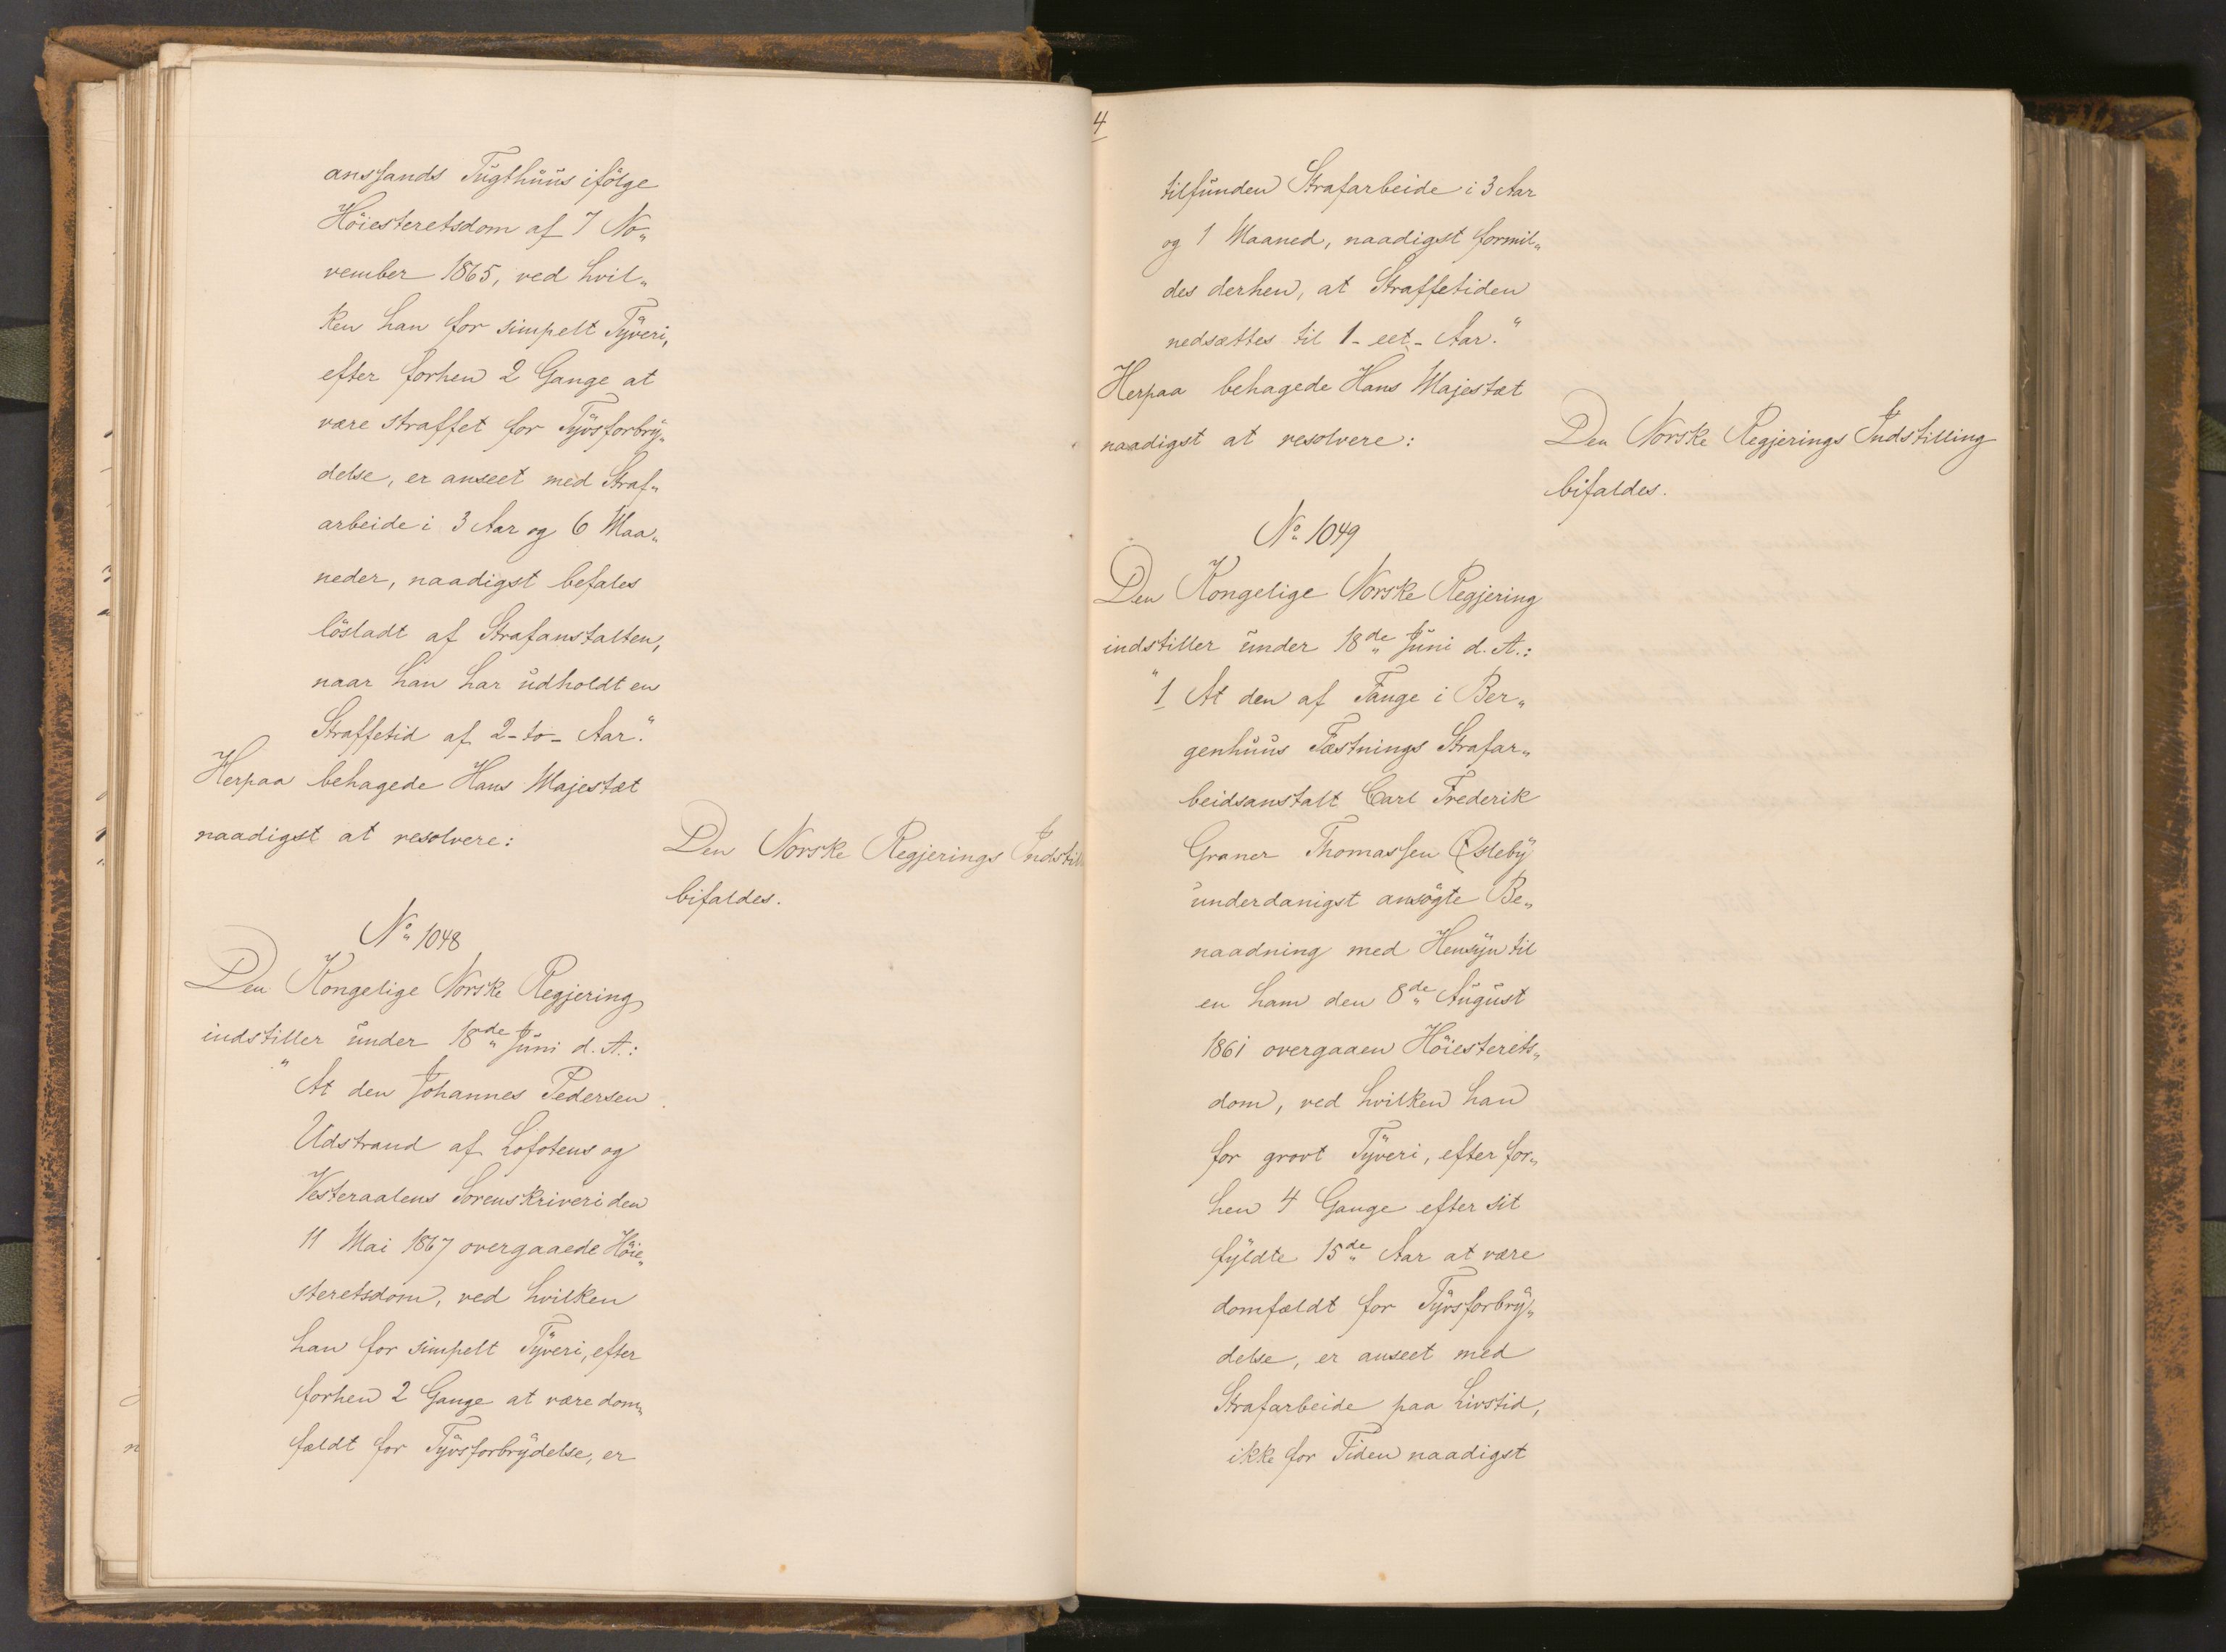 anssands Tugthuus ifölge
Höiesteretsdom af 7 No„
vember 1865, ved hvil„
ken han for simpelt Tyveri,
efter forhen 2 Gange at
være straffet for Tyvsforbry„
delse, er anseet med Straf„
arbeide i 3 Aar og 6 Maa„
neder, naadigst befales
lösladt af Strafanstalten,
naar han har udholdt en
Straffetid af 2-to- Aar."
Herpaa behagede Hans Majestæt
naadigst at resolvere:
Den Norske Regjerings Indstil
bifaldes.
No 1048
Den Kongelige Norske Regjering
indstiller under 18de Juni d. A.:
"At den Johannes Pedersen
Udstrand af Lofotens og
Vesteraalens Sorenskriveri den
11 Mai 1867 overgaaede Höie„
steretsdom, ved hvilken
han for simpelt Tyveri, efter
forhen 2 Gange at være dom„
fældt for Tyvsforbrydelse, er
4
tilfunden Strafarbeide i 3 Aar
og 1 Maaned, naadigst formil„
des derhen, at Straffetiden
nedsættes til 1- eet- Aar."
Herpaa behagede Hans Majestæt
naadigst at resolvere:
Den Norske Regjerings Indstilling
bifaldes.
No 1049
Den Kongelige Norske Regjering
indstiller under 18de Juni d. A.:
"1 At den af Fange i Ber„
genhuus Fæstnings Strafar„
beidsanstalt Carl Frederik
Graner Thomassen Osleby
underdanigst ansögte Be„
naadning med Hensyn til
en ham den 8de August
1861 overgaaen Höiesterets„
dom, ved hvilken han
for grovt Tyveri, efter for„
hen 4 Gange efter sit
fyldte 15de Aar at være
domfældt for Tyvsforbry„
delse, er anseet med
Strafarbeide paa Livstid,
ikke for Tiden naadigst